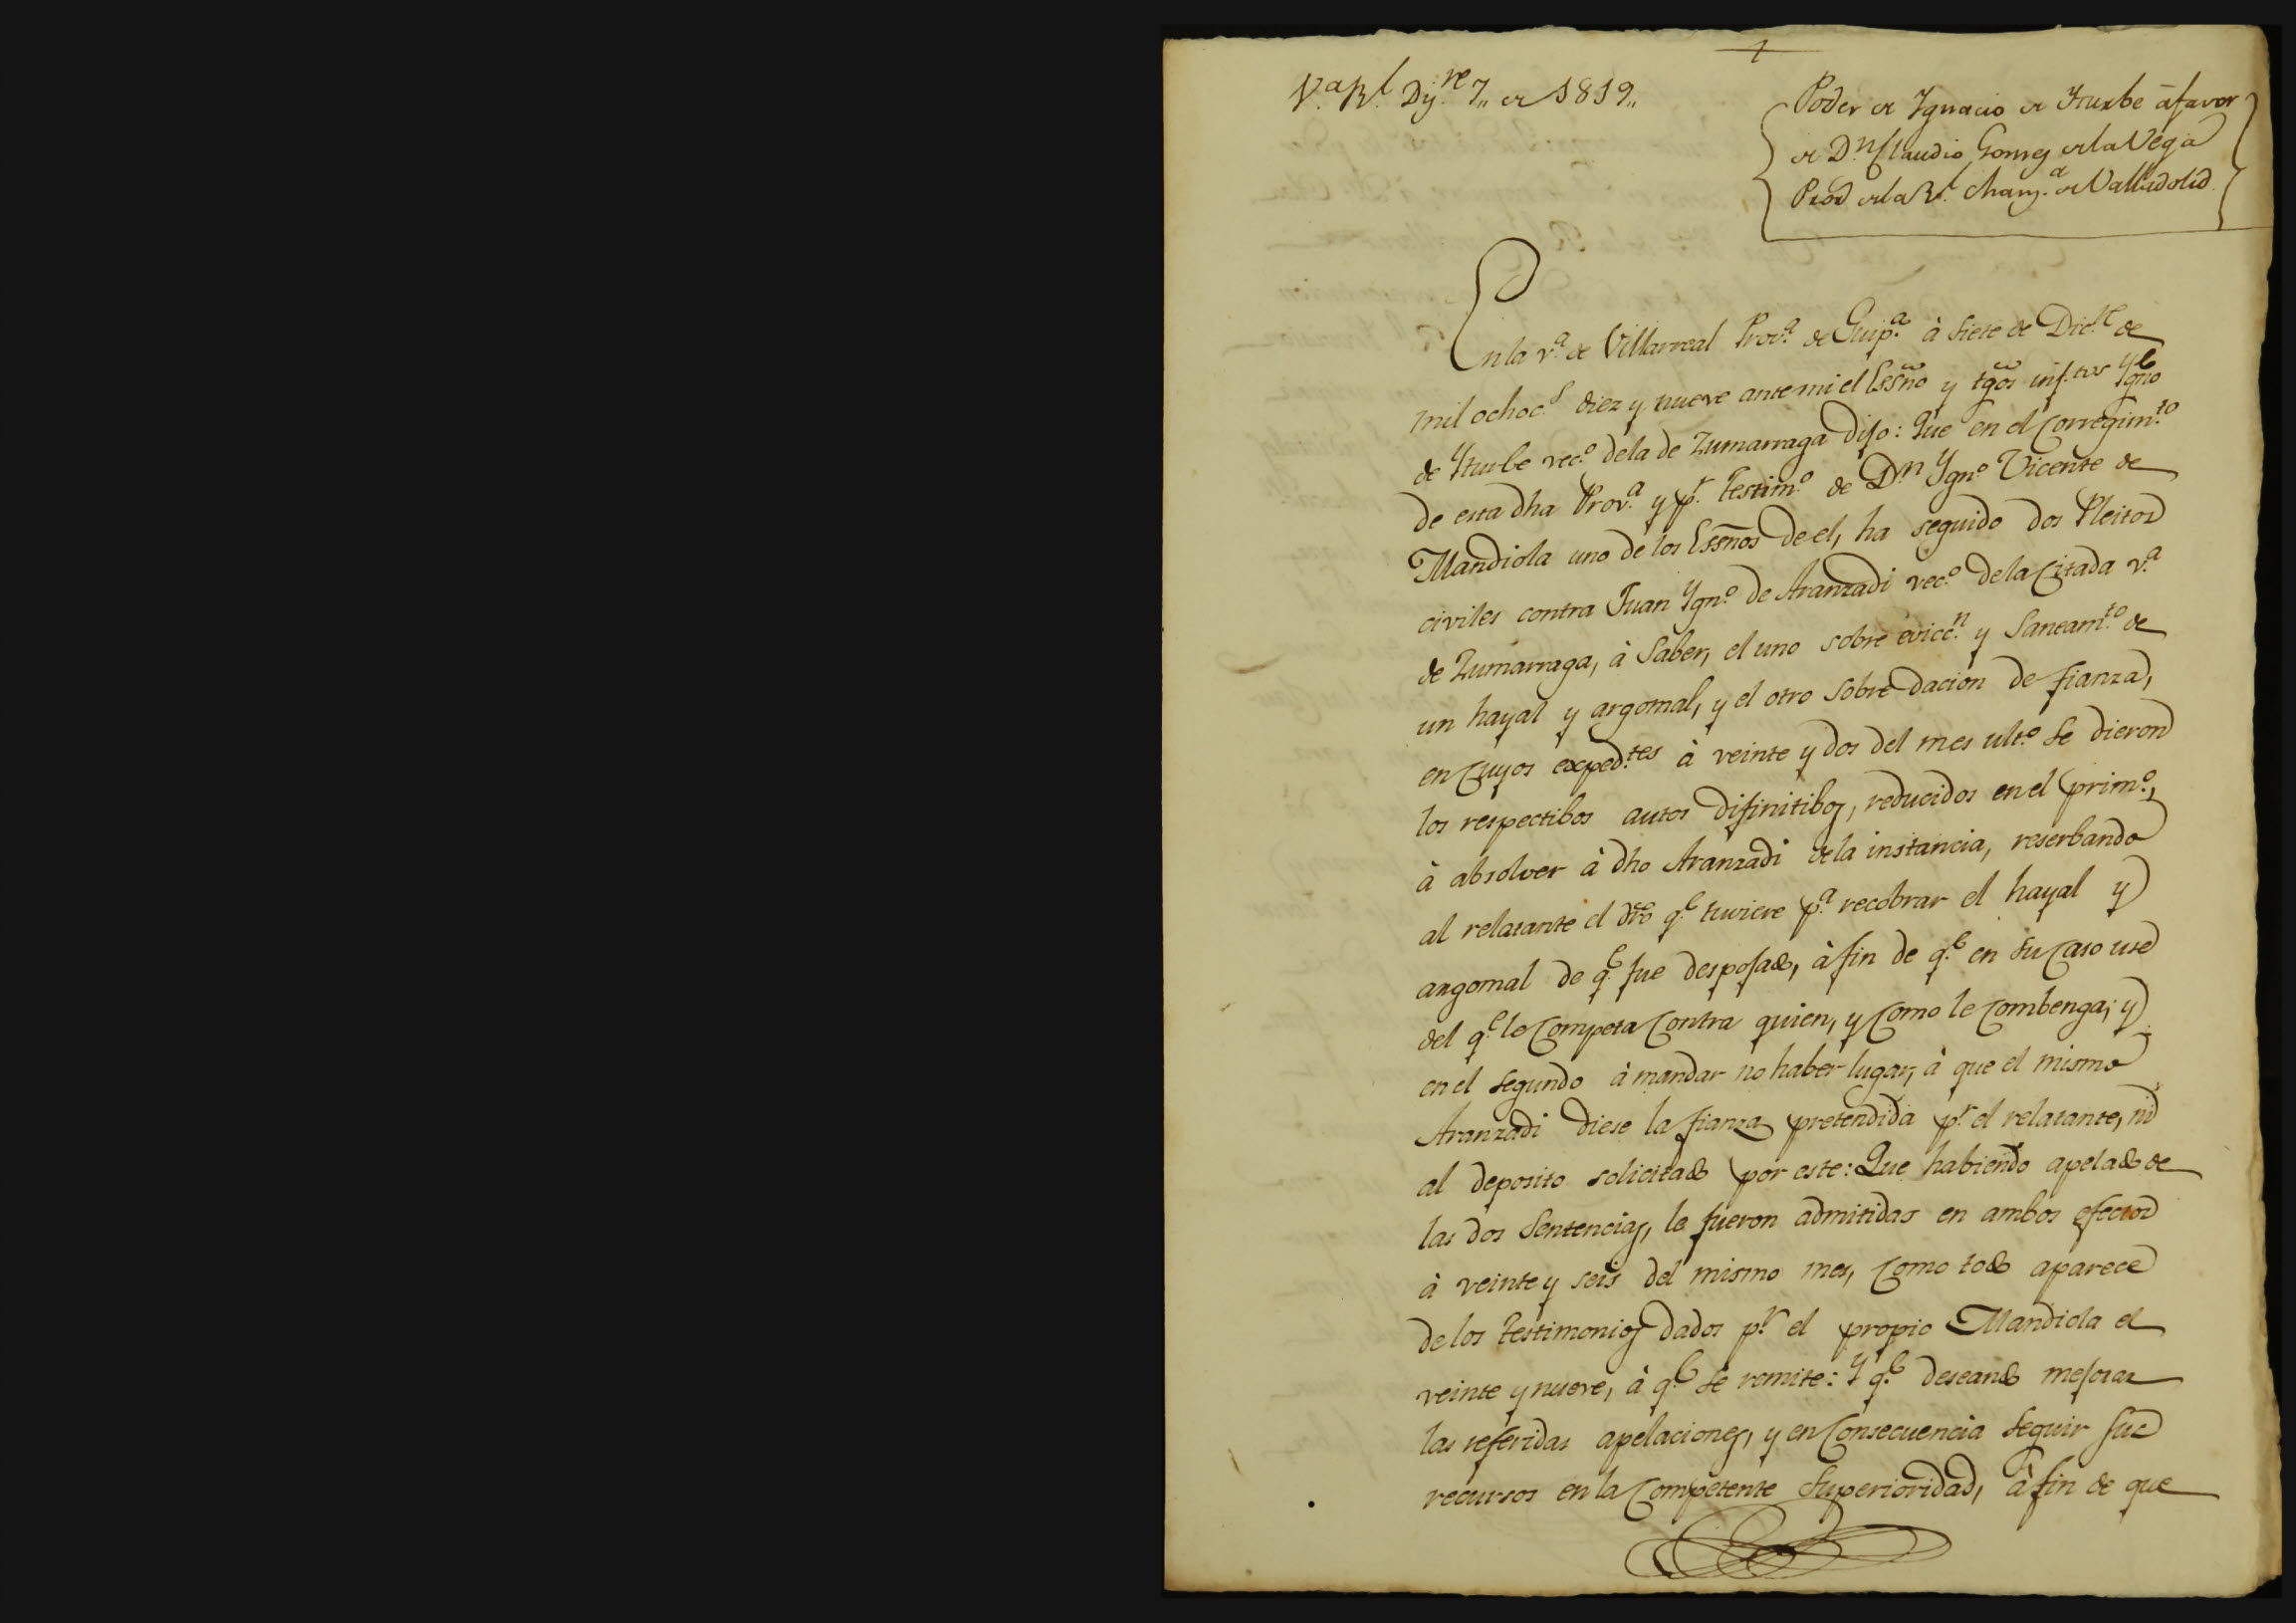 V.ª R.l Dij.re 7,, de 1819,,
Poder de Ygnacio de Yturbe á favor
de D.n Claudio Gomez de la Vega
Pror de la R.l Chanz.ª de Valladolid
En la v.ª de Villarreal Prov.ª de Guip.ª à siete de Dic.re de
mil ochoc.s diez y nueve ante mi el Essño y tgos inf.tos Ygño
de Yturbe vec.º dela de Zumarraga dijo: Que en el Corregim.to
de esta dha Prov.ª y p.r testim.º de D.n Ygn.º Vicente de
Mandiola uno de los Essños de el, ha seguido dos Pleitos
civiles contra Juan Ygn.º de Aranzadi vec.º dela Citada v.ª
de Zumarraga, à Saber, el uno sobre evicc.n y Saneam.to de
un hayal y argomal, y el otro sobre dacion de fianza,
en Cuyos exped.tes à veinte y dos del mes ult.º se dieron
los respectibos autos difinitibos, reducidos en el prim.º,
à absolver à dho Aranzadi de la instancia, reserbando
al relatante el dro q.e tuviere p.ª recobrar el hayal y
argomal de q.e fue despojado, à fin de q.e en su Caso use
del q.e le Competa Contra quien, y Como le Combenga; y
en el segundo à mandar no haber lugar, à que el mismo
Aranzadi diese la fianza pretendida p.r el relatante, ni
al deposito solicitado por este: Que habiendo apelado de
las dos Sentencias, le fueron admitidas en ambos efectos
à veinte y seis del mismo mes, Como todo aparece
de los testimonios dados p.r el propio Mandiola el
veinte y nueve, à q.e se remite: Y q.e deseando mejorar
las referidas apelaciones, y en Consecuencia seguir sus
recursos en la Competente Superioridad, à fin de que